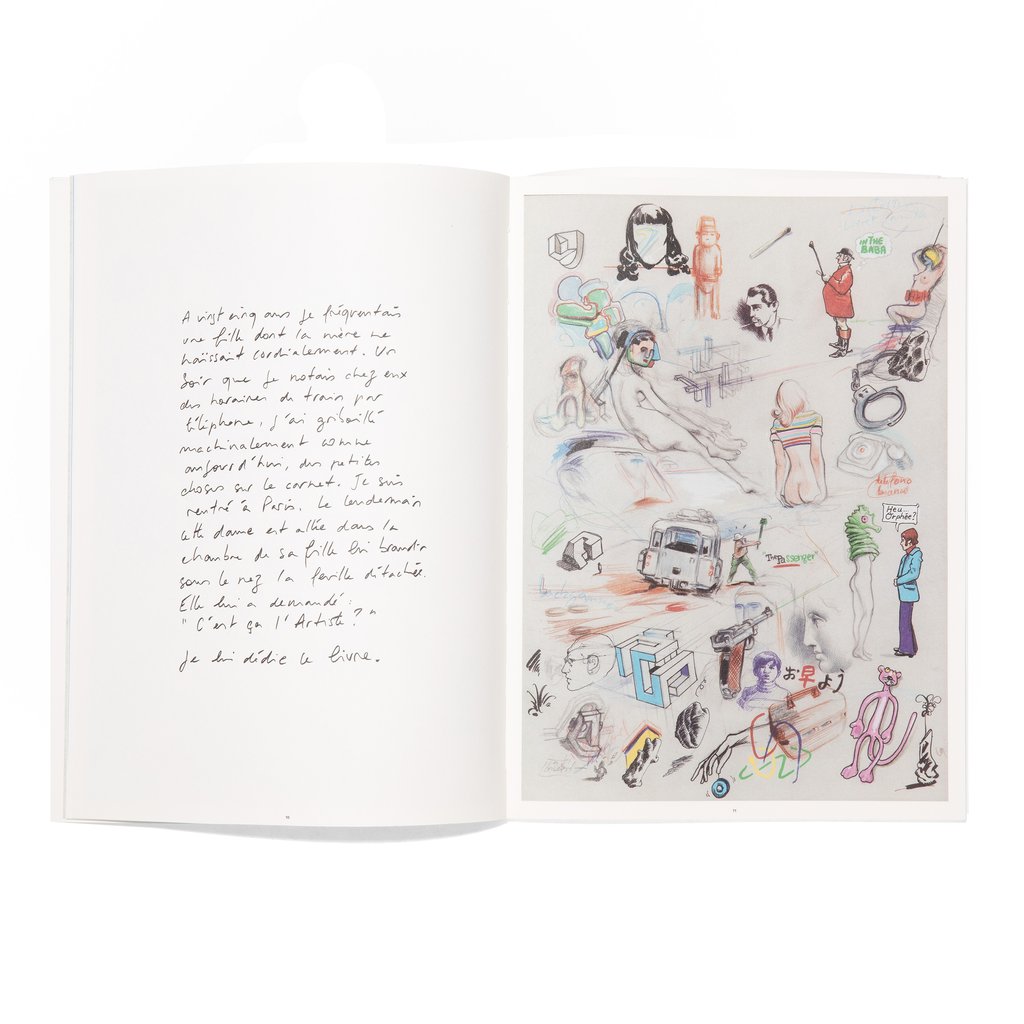 A vingt cinq ans je fréquentais
une fille dont la mère me
haïssait cordialement. Un
soir que je notais chez eux
des horaires de train par
téléphone, j'ai gribouillé
machinalement comme
aujourd'hui, des petites
choses sur le carnet. Je suis
rentré à Paris. Le lendemain
cette dame est allée dans la
chambre de sa fille lui brandir
sous le nez la feuille détachée.
Elle lui a demandé :
" C'est ça l'Artiste ? "
Je lui dédie ce livre.
IN THE
BABA
telefono
bianco
Heu...
Orphée?
"The Passenger"
お早よう